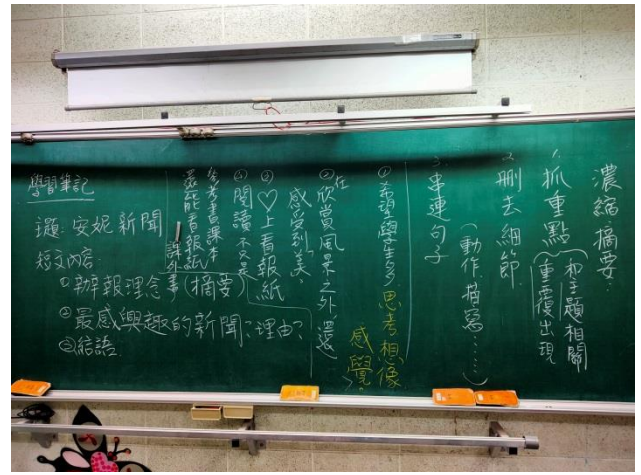 濃縮摘要:
1. 抓重點(和主題相關
重覆出現
2. 刪去細節
(動作、描寫……)
3. 串連句子
①希望學生多思考想像
感覺
②在欣賞風景之外,還
感受到美,
③♡上看報紙
④閱讀不只是
參考書課本
還能看報紙
課外
學習筆記
主題:安妮新聞
短文內容:
①辦報理念事(摘要)
②最感興趣的新聞?理由?
③結語: